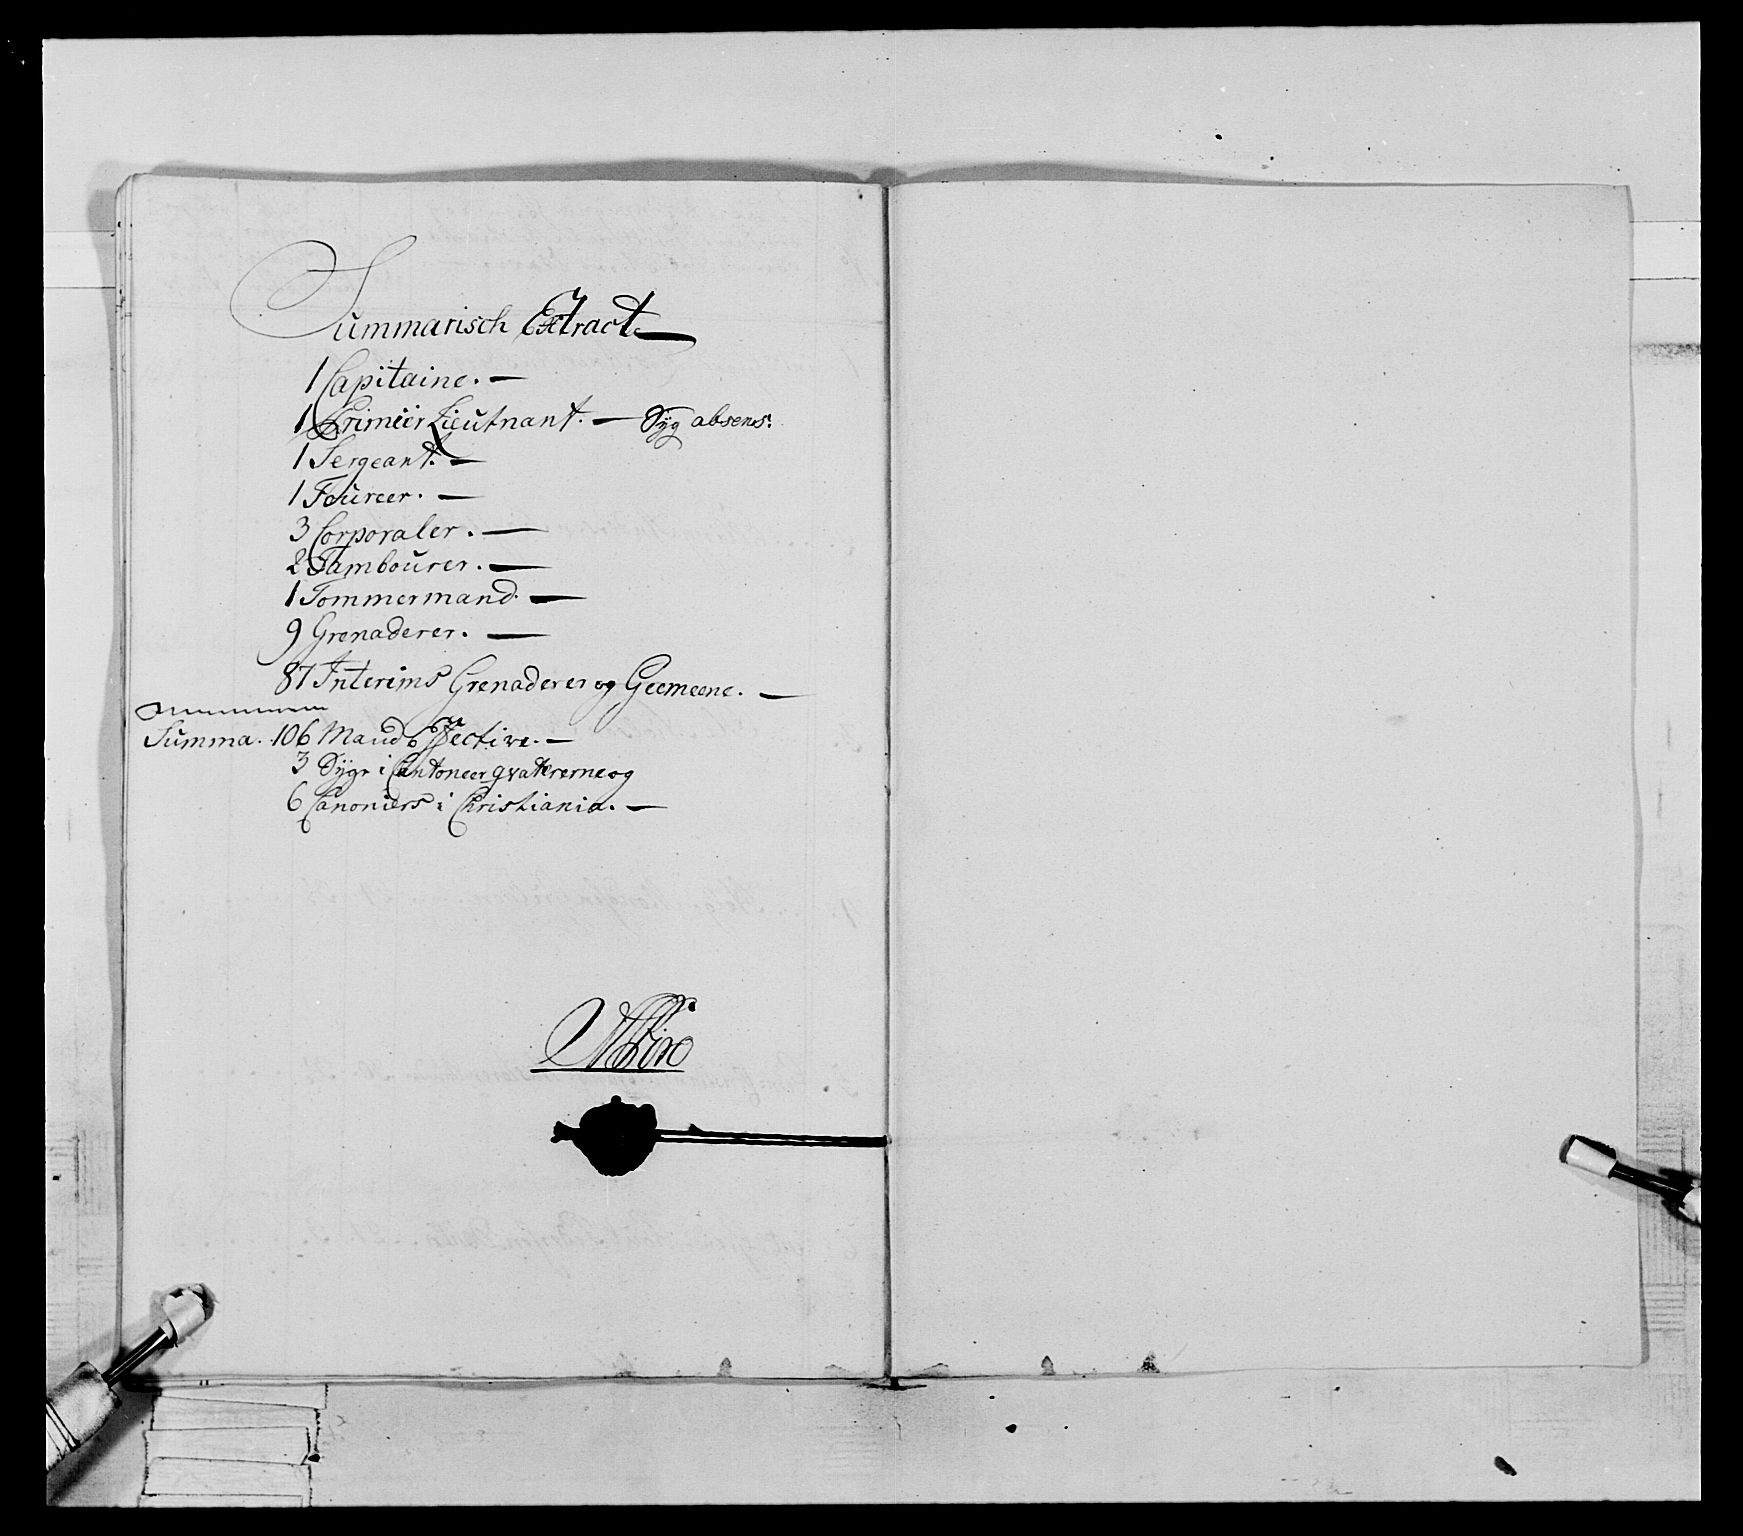 Summarisch Extract
1 Capitaine. —
1 Primier Lieutnant. — Syg absens:
1 Sergeant. —
1 Foureer. —
3 Corporaler. —
2 Tambourer. —
1 Tommermand. —
9 Grenaderer. —
87 Interims Grenaderer og Geemeene. —
Summa. 106 Mand Effective. —
3 Syge i Cantoneer qvatererne og
6 Canoniers i Christiania. —